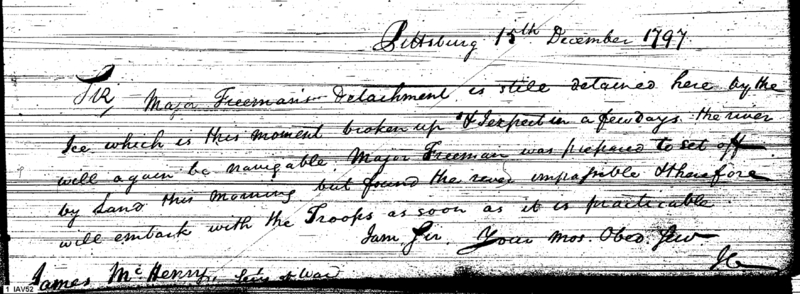 Pittsburg 15th December 1797
Sir, Major Freeman's Detachment is still detained here by the
Ice which is this moment broken up & I expect in a few days the river
will again be navigable Major Freeman was prepared to set off
by Land this morning but found the river impassible & therefore
will embark with the Troops as soon as it is practicable.
I am, Sir, Your Mos. Obed. Serv
James McHenry, Sec'y of War
1 IAV52